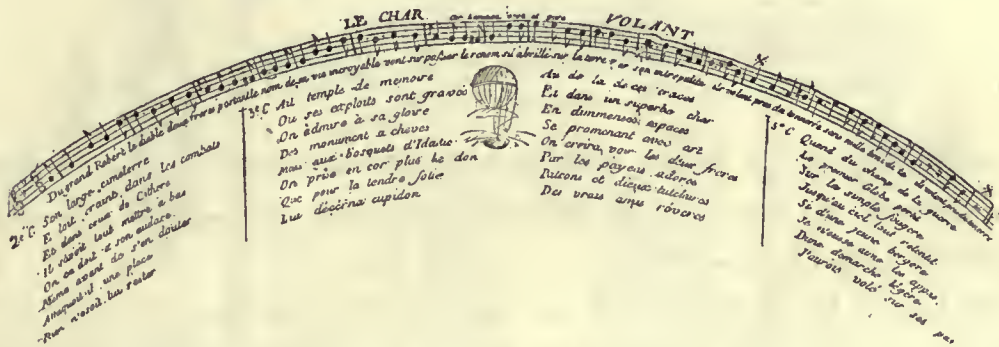 LE CHAR VOLANT
Du grand Robert le diable deux freres portant le nom d'une vie incroyable vont surpasser le renom s'il a brillé sur la terre par ses intrepidité ils volent pres du tonnerre sans
2e C. Son large cimeterre
E tout craint dans les combats
Et dans ceux de Cithere
Il sávoit tout mettre a bas
On ce doit a son audace
Meme avant de s'en douter
Attaquoit il une place
Rien n'osoit lui rester
3e C Au temple de memoire
Ou ses exploits sont gravés
On admire a sa gloire
Des monument a chevés
Mais aux bosquets d'Idalie
On prise en cor plus le don
Que pour la tendre folie
Lui décerna cupidon
Au de la de ces traces
Et dans un superbe char
En d'immenses espaces
Se promenant avec art
On croira voir les deux freres
Par les payens adorés
Patrons et dieux tutelaires
Des vrais amis réverés
5e C Quand du champ de la guerre
Le premier Globe porté
Sur les simples fugere
Jusqu'au ciel tout retentit
Si d'une jeune bergere
Je n'eusse aimé les appas
D'une démarche légère
J'aurois volé sur ses pas